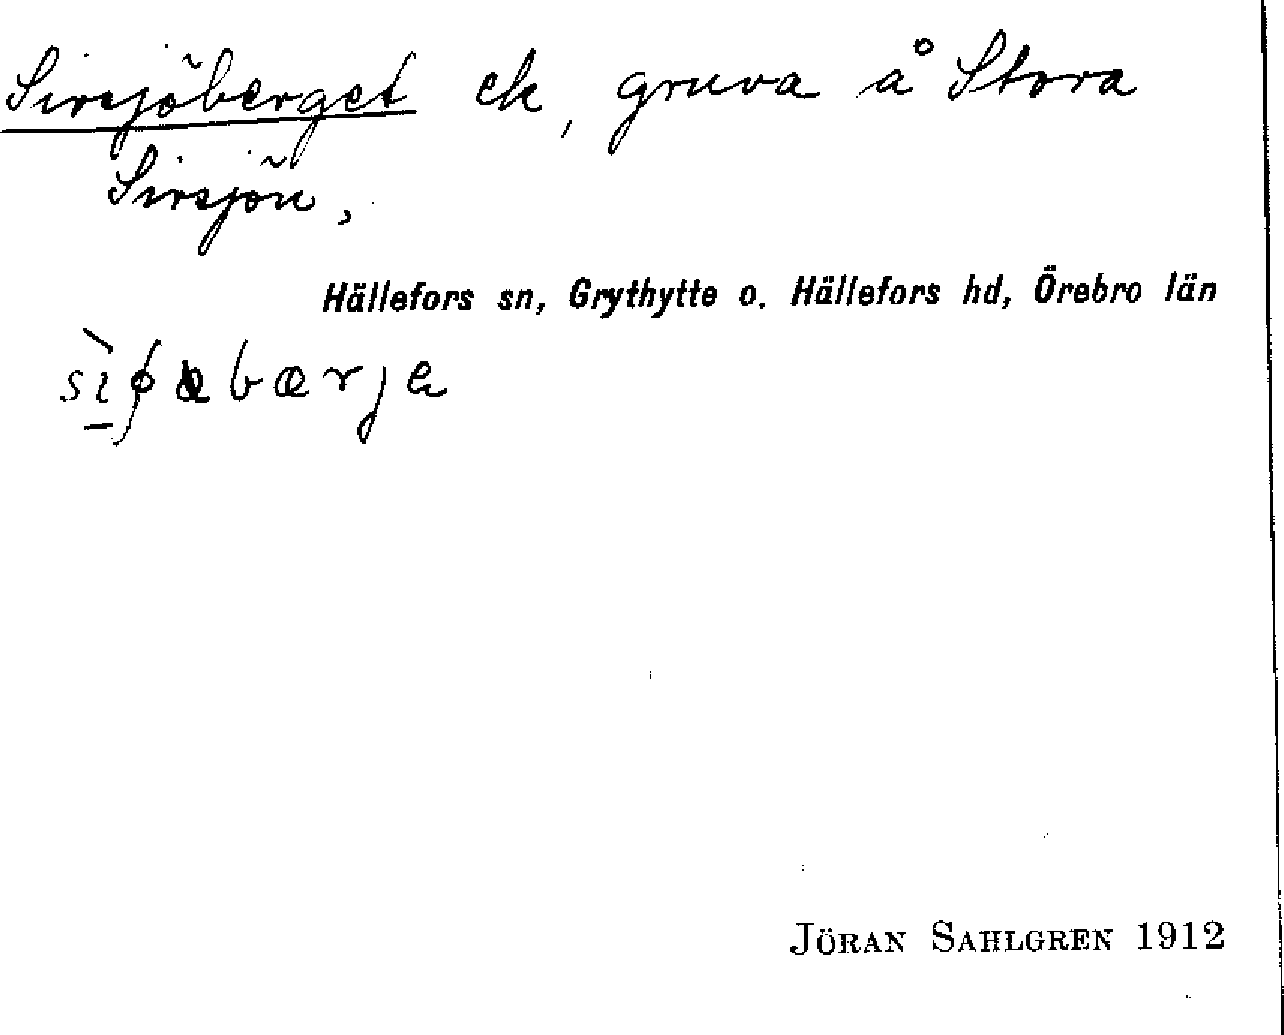 Sirsjöberget ek, gruva å Stora
Sirsjön,
Hällefors sn, Grythytte o. Hällefors hd, Örebro län
JÖRAN SAHLGREN 1912